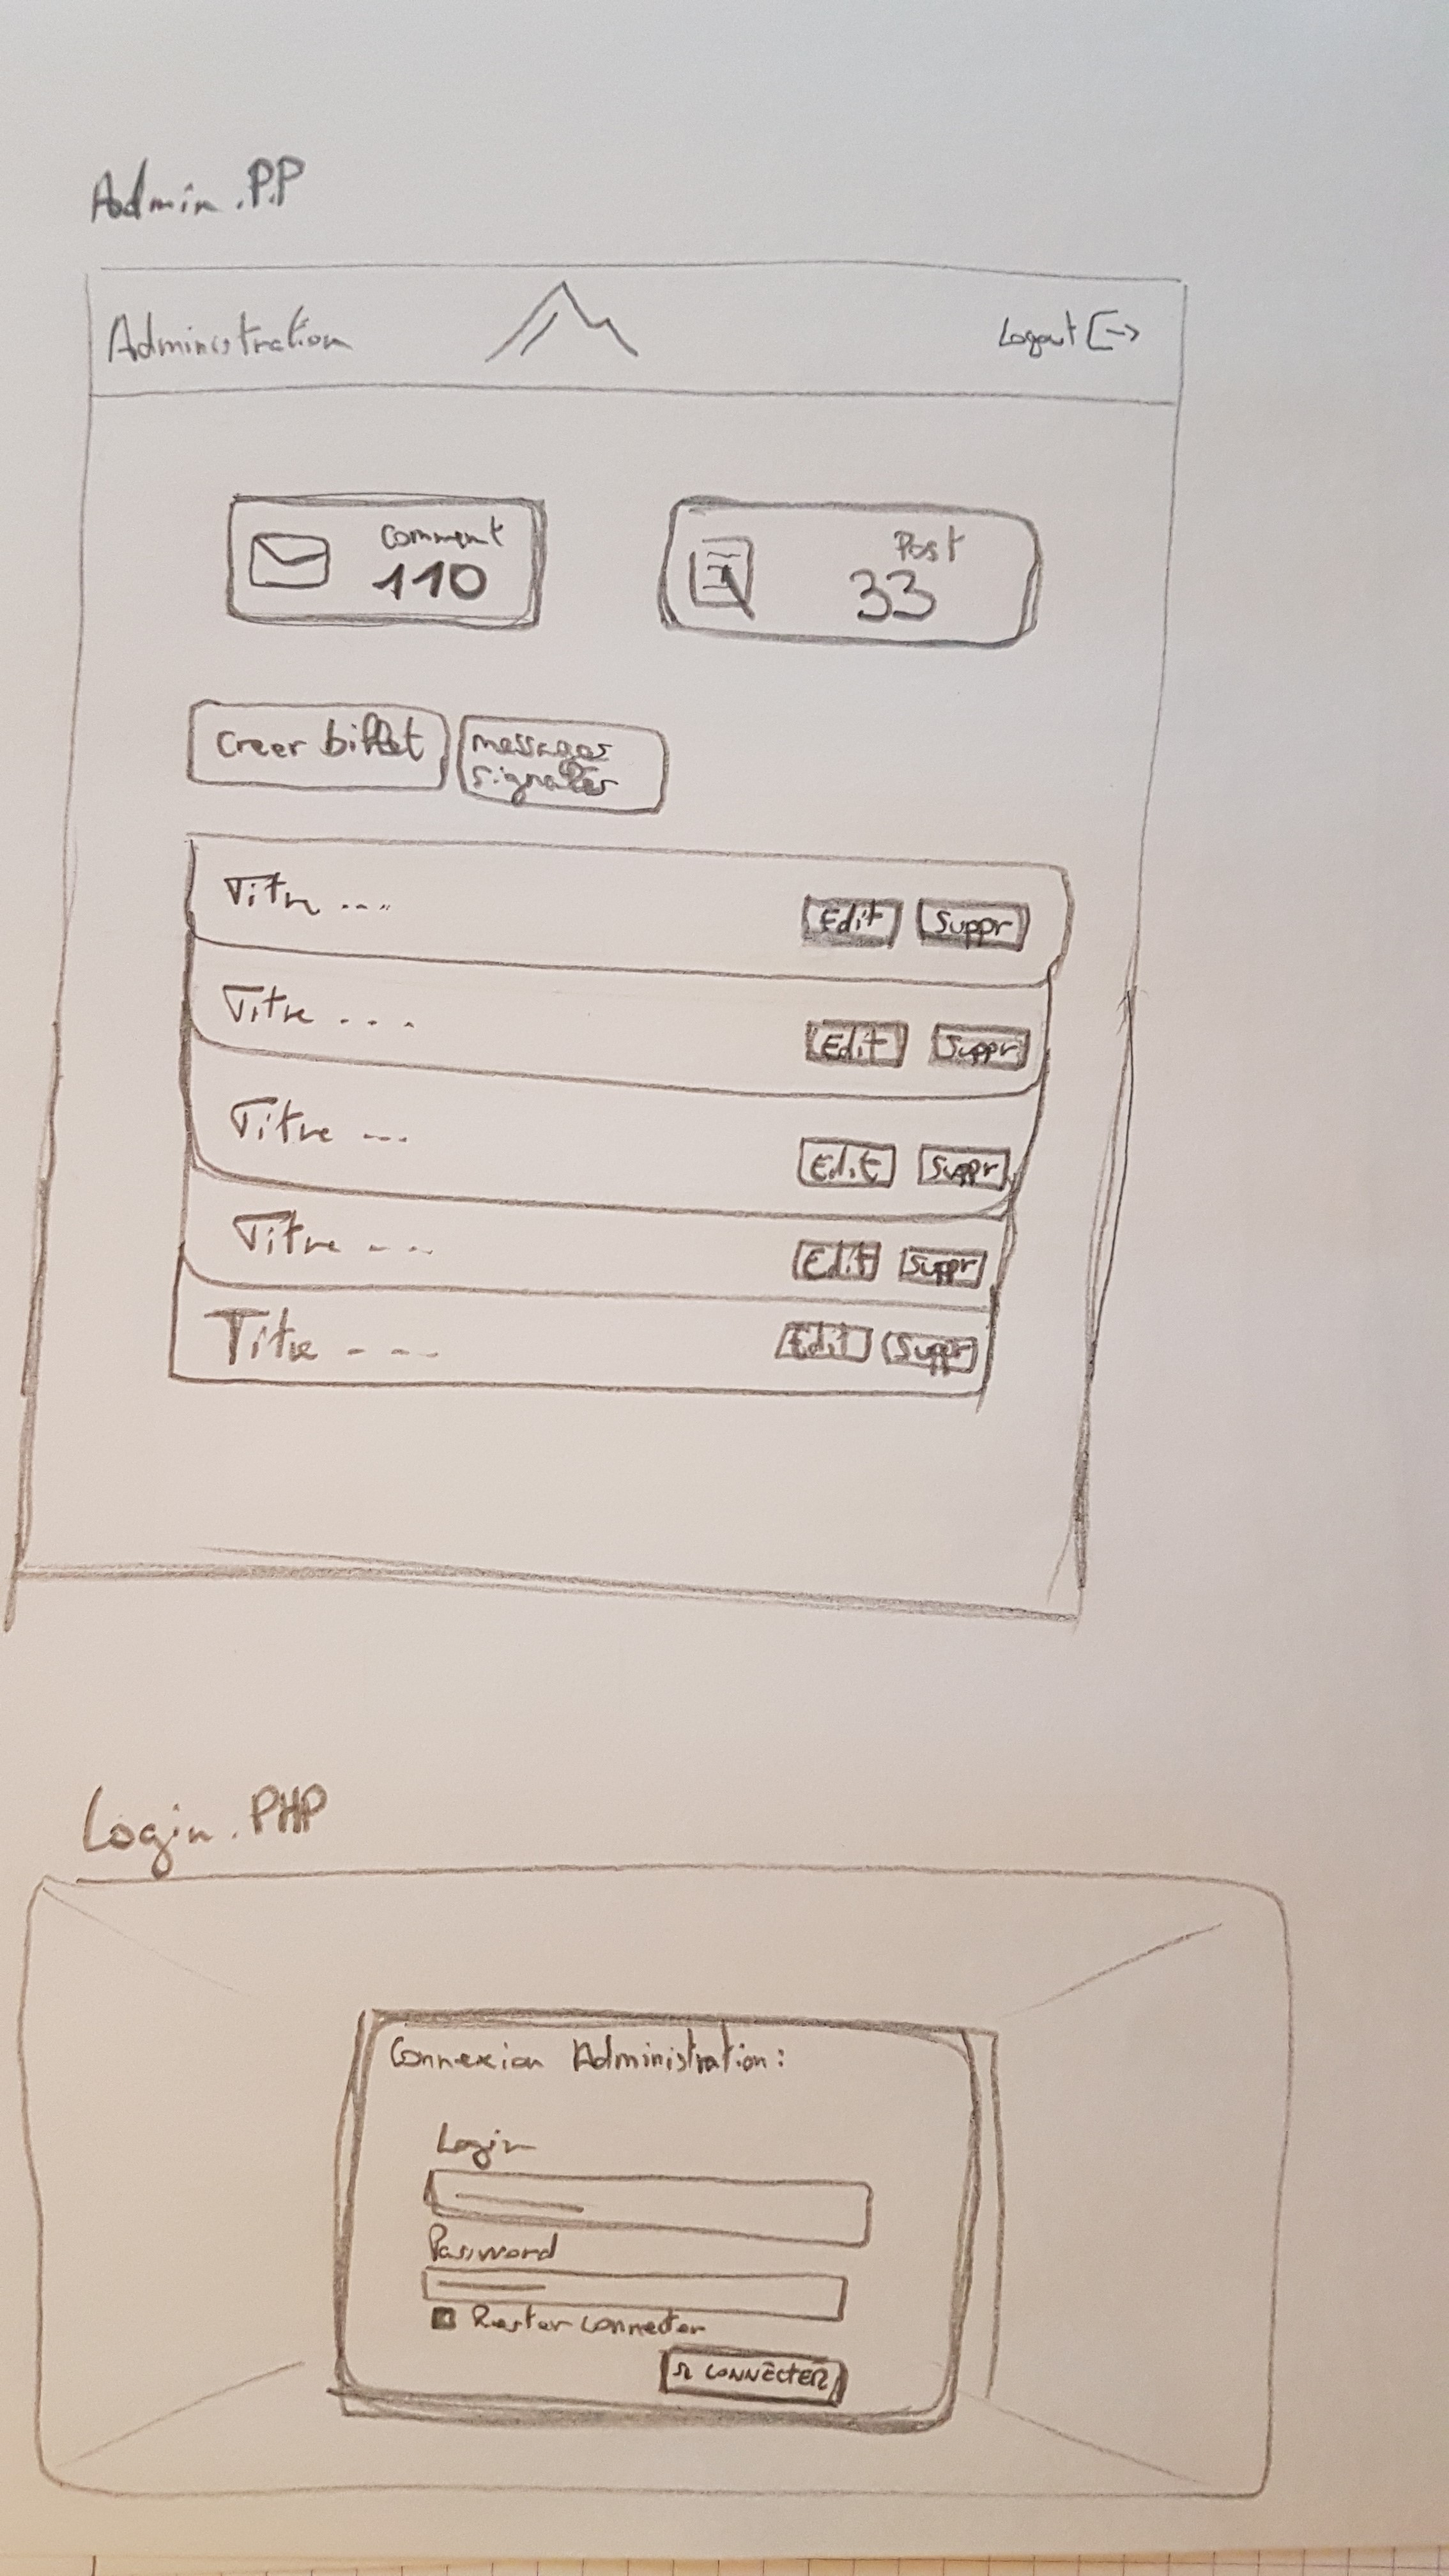 Admin.P.P
Administration
Logout
Comment
110
Post
33
Creer billet
messages
signalés
Titre ....
Edit Suppr
Titre ...
Edit Suppr
Titre ...
Edit Suppr
Titre ...
Edit Suppr
Titre ...
Edit Suppr
Login.PHP
Connexion Administration:
Login
Password
Rester connecter
SE CONNECTER